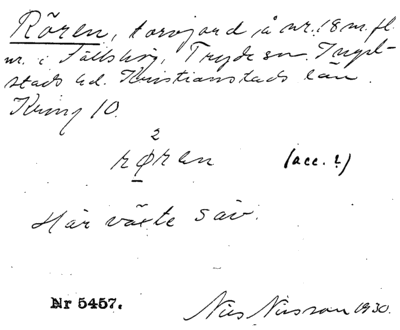 Rören, torvjord å nr. 18 m. fl.
nr. i Fällshög, Tryde sn. Ingel-
stads hd. Kristianstads län.
Kring 10.
2
røren (acc. 2)
Här växte säv.
Nr 5457. Nils Nilsson 1930.